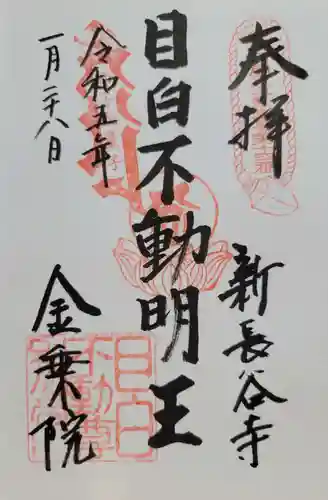 奉拝
新長谷寺
目白不動明王
令和五年
一月二十八日
金乗院
目白
不動尊